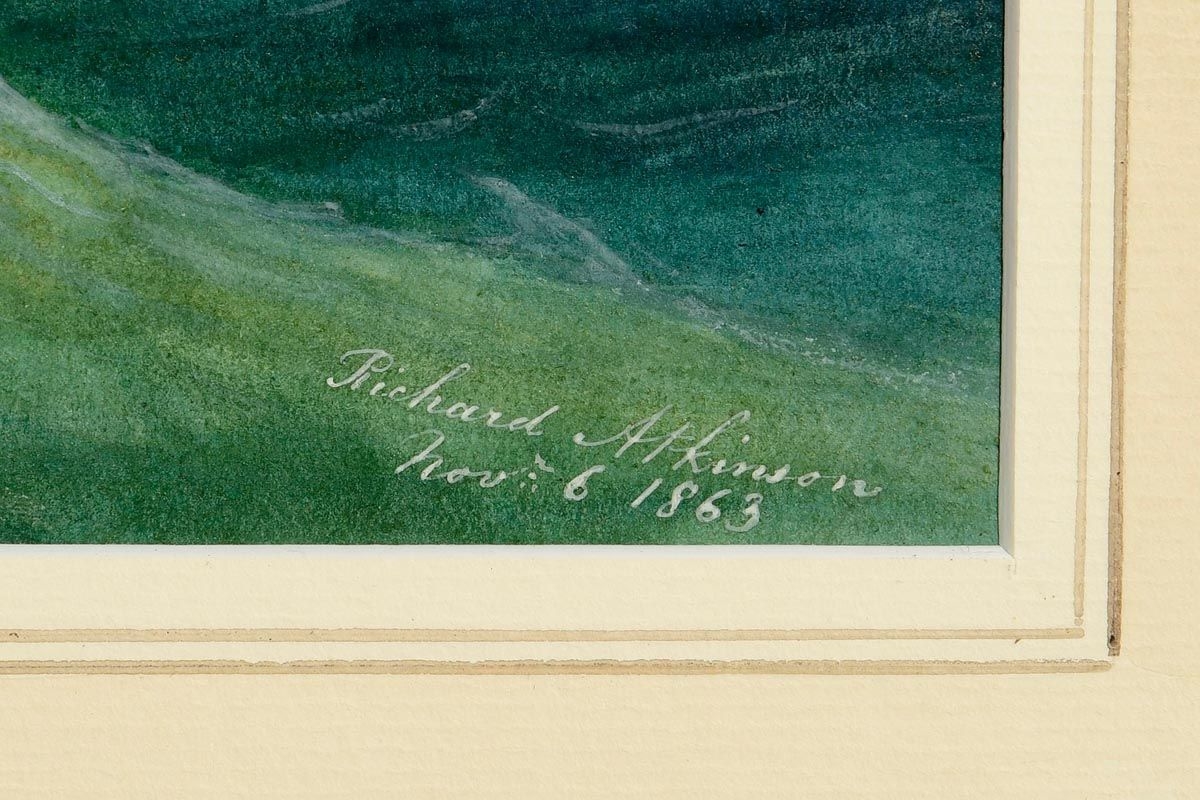 Richard Atkinson
Nov.r 6 1863